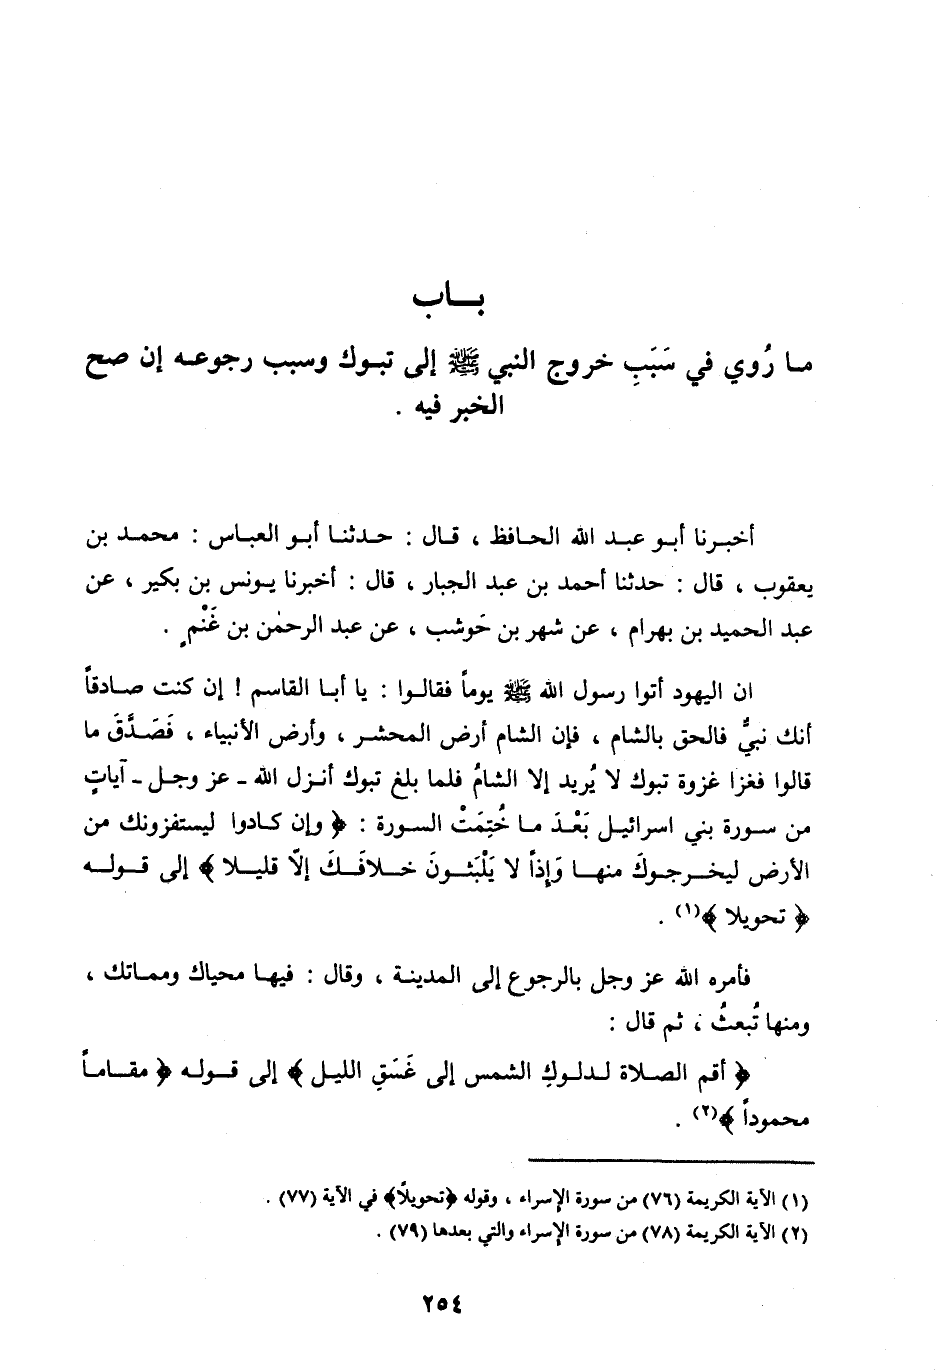 بـــاب
مـا رُوي في سَبَبِ خروج النبي ﷺ إلى تبـوك وسبب رجوعـه إن صح
الخبر فيه .
أخبـرنا أبـو عبـد الله الحـافظ ، قـال : حـدثنـا أبـو العباس : محمـد بن
يعقوب ، قال : حدثنا أحمد بن عبد الجبار ، قال : أخبرنا يـونس بن بكير ، عن
عبد الحميد بن بهرام ، عن شهر بن حَوشب ، عن عبد الرحمٰن بن غَنْمٍ .
ان اليهود أتوا رسول الله ﷺ يوماً فقالـوا : يا أبـا القاسم ! إن كنت صـادقاً
أنك نبيٌّ فالحق بالشام ، فإن الشام أرض المحشـر ، وأرض الأنبياء ، فَصَـدَّقَ ما
قالوا فغزا غزوة تبوك لا يُريد إلا الشامُ فلما بلغ تبوك أنـزل الله ـ عز وجـل ـ آياتٍ
من سـورة بني اسرائيـل بَعْـدَ مـا خُتِمَتْ السـورة : ﴿ وإن كـادوا ليستفزونك من
الأرض ليخـرجـوكَ منهـا وَإِذاً لا يَلْبَثـونَ خـلافَـكَ إلاّ قليـلا ﴾ إلى قـولـه
﴿ تحويلا ﴾(١) .
فأمره الله عز وجل بالرجوع إلى المدينـة ، وقال : فيهـا محياك وممـاتك ،
ومنها تُبعثُ ، ثم قال :
﴿ أقم الصـلاة لـدلـوكِ الشمس إلى غَسَقِ الليـل ﴾ إلى قـولـه ﴿ مقـامـاً
محموداً ﴾(٢) .
(١) الآية الكريمة (٧٦) من سورة الإسراء ، وقوله ﴿تحويلًا﴾ في الآية (٧٧) .
(٢) الآية الكريمة (٧٨) من سورة الإسراء والتي بعدها (٧٩) .
٢٥٤